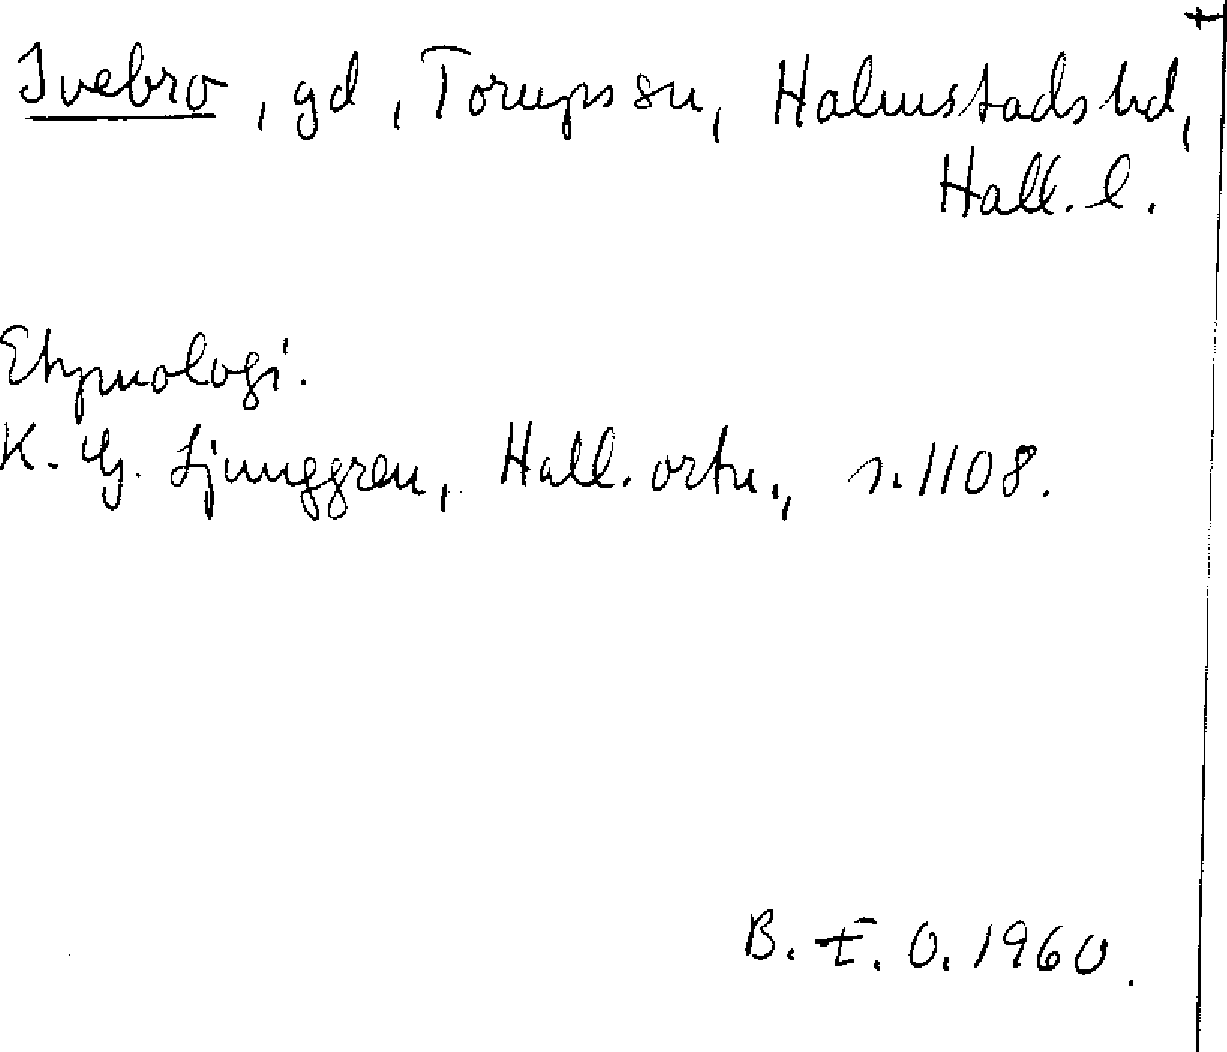 Ivebro, gd, Torups sn, Halmstads hd,
Hall. l.
Etymologi.
K. G. Ljunggren, Hall. ortn., s. 1108.
B. E. O. 1960.